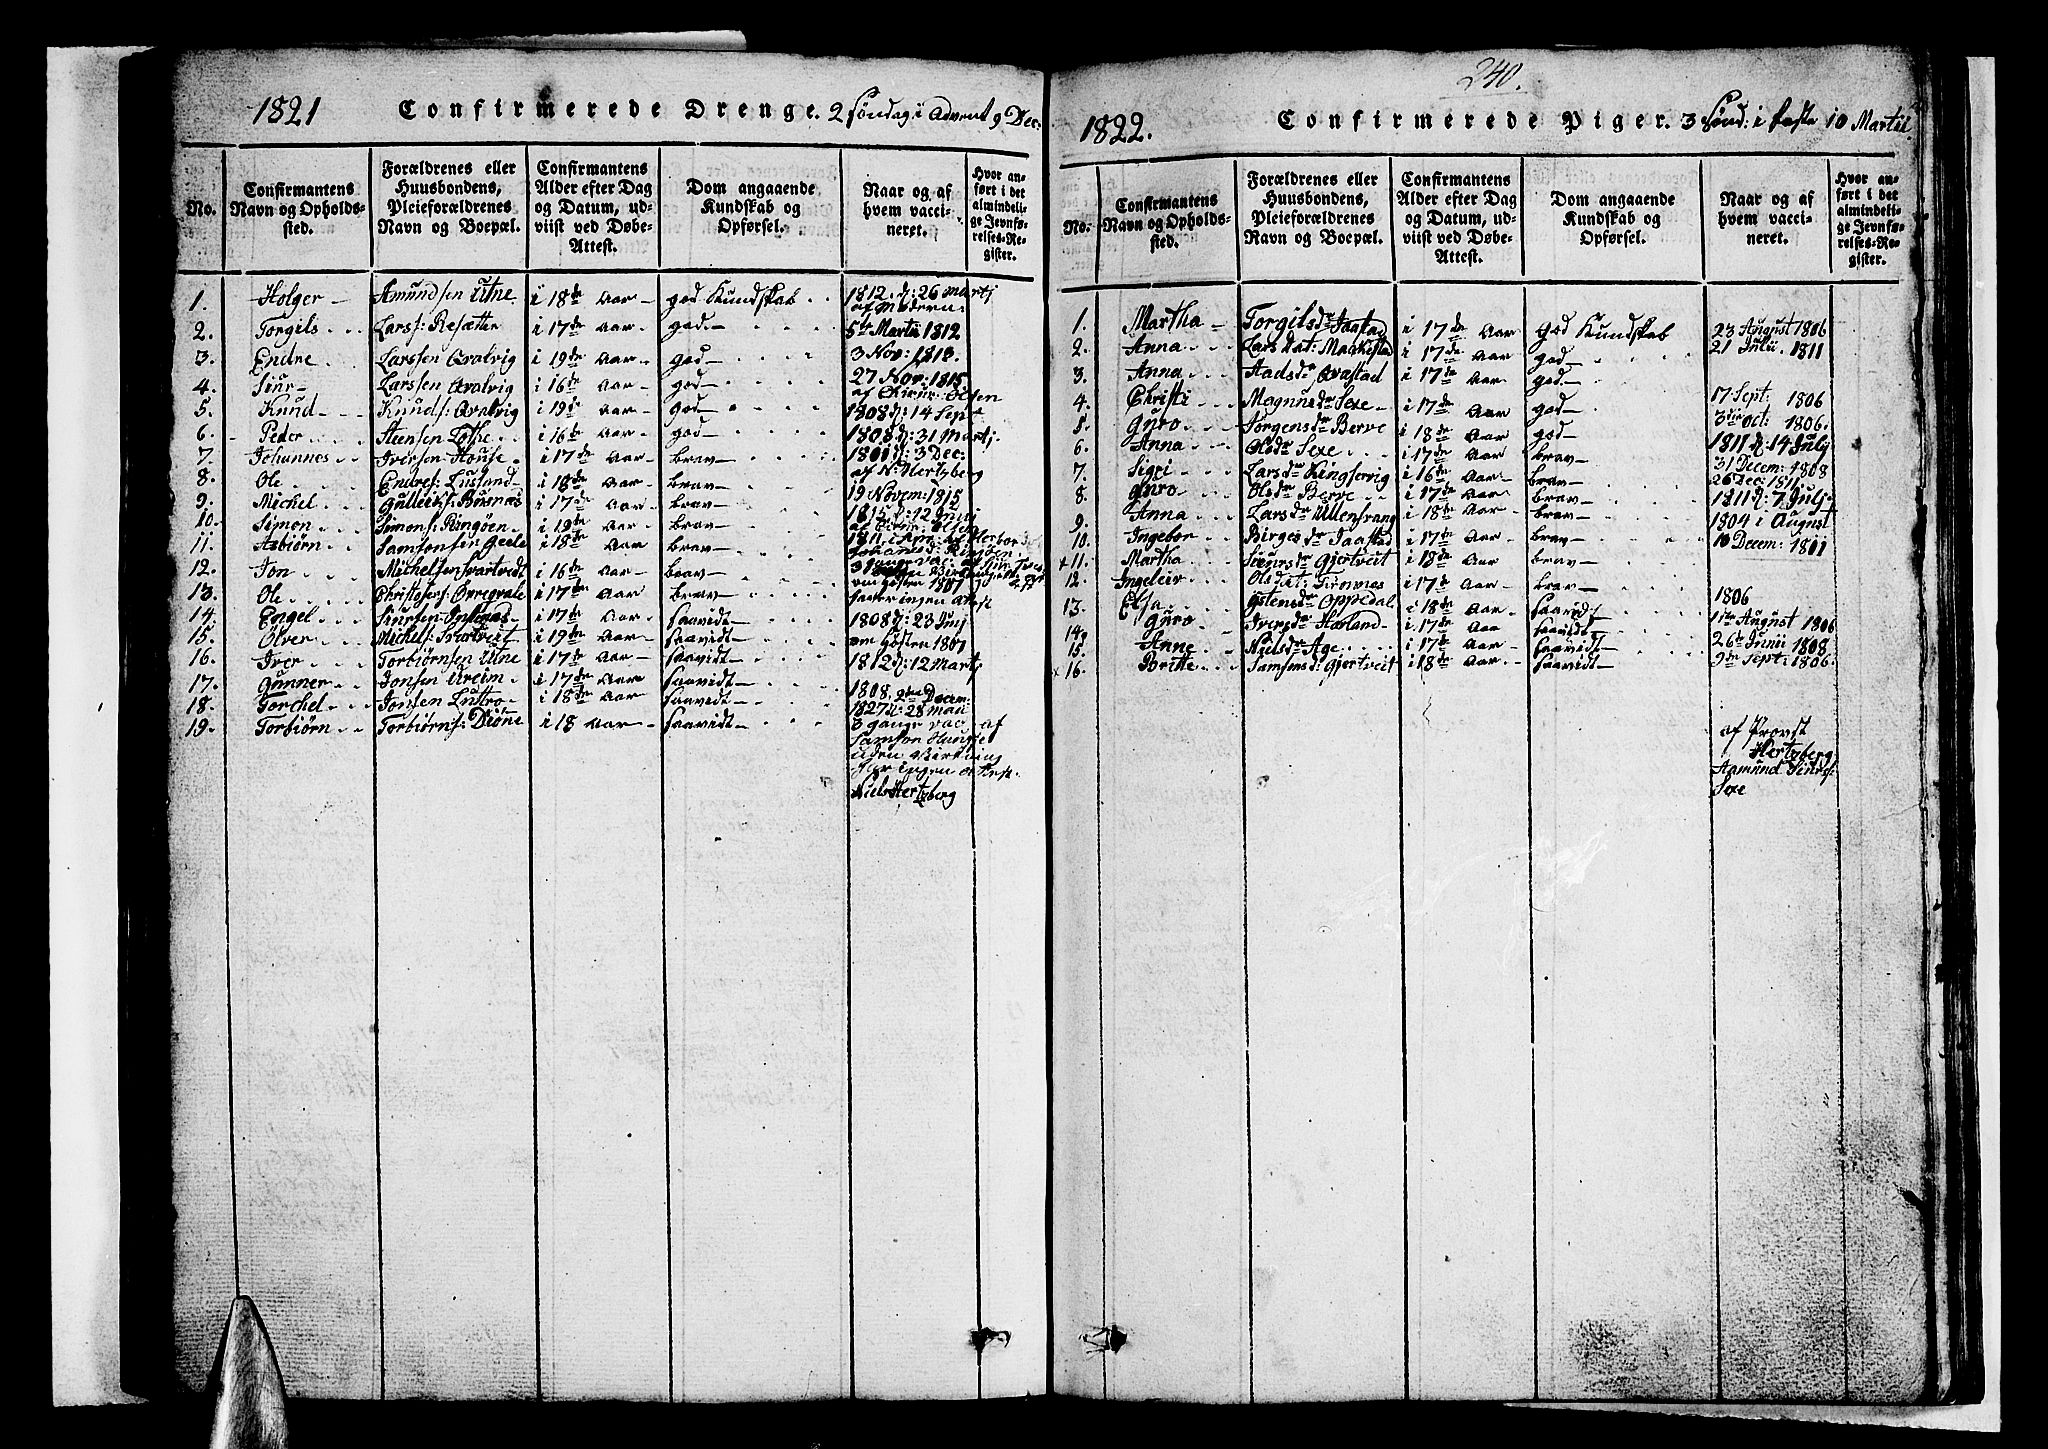 240.
1821 Confirmerede Drenge. 2 Søndag i Advent 9 Dec:
No.
Confirmantens Navn og Opholdssted.
Forældrenes eller Huusbondens, Pleieforældrenes Navn og Boepæl.
Confirmantens Alder efter Dag og Datum, udviist ved Døbe-Attest.
Dom angaaende Kundskab og Opførsel.
Naar og af hvem vaccineret.
Hvor anført i det almindelige Jevnførelses-Register.
1. Holger Amundsen Utne i 18de Aar god Kundskab 1812 d: 26 Martj
2. Torgils Lars: Resætter i 17de Aar god 5te Martii 1812
3. Endre Larssen Qvalvig i 19de Aar god 3 Nov: 1813
4. Siur Larssen Qvalvig i 16de Aar god 27 Nov: 1815
af Chirur: Olsen
5. Knud Knuds: Qvalvig i 19de Aar god 1808 d: 14 Sept
6. Peder Steensen Lothe i 16de Aar god 1808 d: 31 Martj
7. Johannes Iversen House i 17de Aar brav 1801 d: 3 Dec:
af N: Hertzberg
8. Ole Endres: i 18de Aar brav
9. Michel Gulleiks: Busnæs i 17de Aar brav 19 Novem: 1815
10. Simon Simons: Ringøen i 19de Aar brav 1815 d: 12 Junj
11. Asbiørn Samsonsen i 18de Aar brav
12. Jon Michelsen Svartvedt i 16de Aar brav
13. Ole Christophers: Øvregvale i 17de Aar brav
14. Engel Siursen i 17de Aar saavidt 1808 d: 23 Junj
15. Olver Michels: i 19de Aar saavidt om Høsten 1801
16. Iver Torbiørnsen Utne i 17de Aar saavidt 1812 d: 12 Martj
17. Gunner Jonsen Ureim i 17de Aar saavidt
18. Torchel Jonsen Luttro i 18de Aar saavidt 1808. Decem:
1827 d: 28 Maii
19. Torbiørn Torbiørns: Diøne i 18 Aar saavidt 3 gange vac: af
Samson
uden Virkning
ingen Attest.
Niels Hertzberg
1822. Confirmerede Piger. 3 Sønd: i Faste 10 Martii
No.
Confirmantens Navn og Opholdssted.
Forældrenes eller Huusbondens, Pleieforældrenes Navn og Boepæl.
Confirmantens Alder efter Dag og Datum, udviist ved Døbe-Attest.
Dom angaaende Kundskab og Opførsel.
Naar og af hvem vaccineret.
Hvor anført i det almindelige Jevnførelses-Register.
1. Martha Torgilsdr Jaastad i 17de Aar god Kundskab 23 August 1806
2. Anna Lars dat: i 17de Aar god 21 Julii 1811
3. Anna Aadsdr i 17de Aar god
4. Christi Magnusdr Sexe i 17de Aar god 17 Sept: 1806
5. Guro Jorgensdr Berve i 18de Aar god 3die oct: 1806.
6. Anna Olsdr Sexe i 17de Aar brav 1811 d: 14 Julj
7. Sigri Larsdr Kingservig i 16de Aar brav 31 Decem: 1808
8. Guro Olsdr Berve i 17de Aar brav 26 Dec: 1811
9. Anna Larsdr Ullensvang i 18de Aar brav 1811 d: 7 Julj
10. Ingebor Birgesdr Jaastad i 17de Aar brav 1804 i August
+ 11. Martha Siursdr Gjertveit i 18de Aar brav 10 Decem: 1801
12. Ingeleiv Ols dat: i 17de Aar brav
13. Elsa Østensdr Oppedal i 18de Aar saavidt 1806
14. Guro Iversdr Hovland i 17de Aar saavidt 1ste August 1806
15. Anne Nielsdr Age i 17de Aar saavidt 26de Junii 1808
x 16. Britte Samsonsdr Gjertveit i 18de Aar saavidt 9de Sept: 1806.
af Provst
Hertzberg
Aamund Siurs:
Sexe